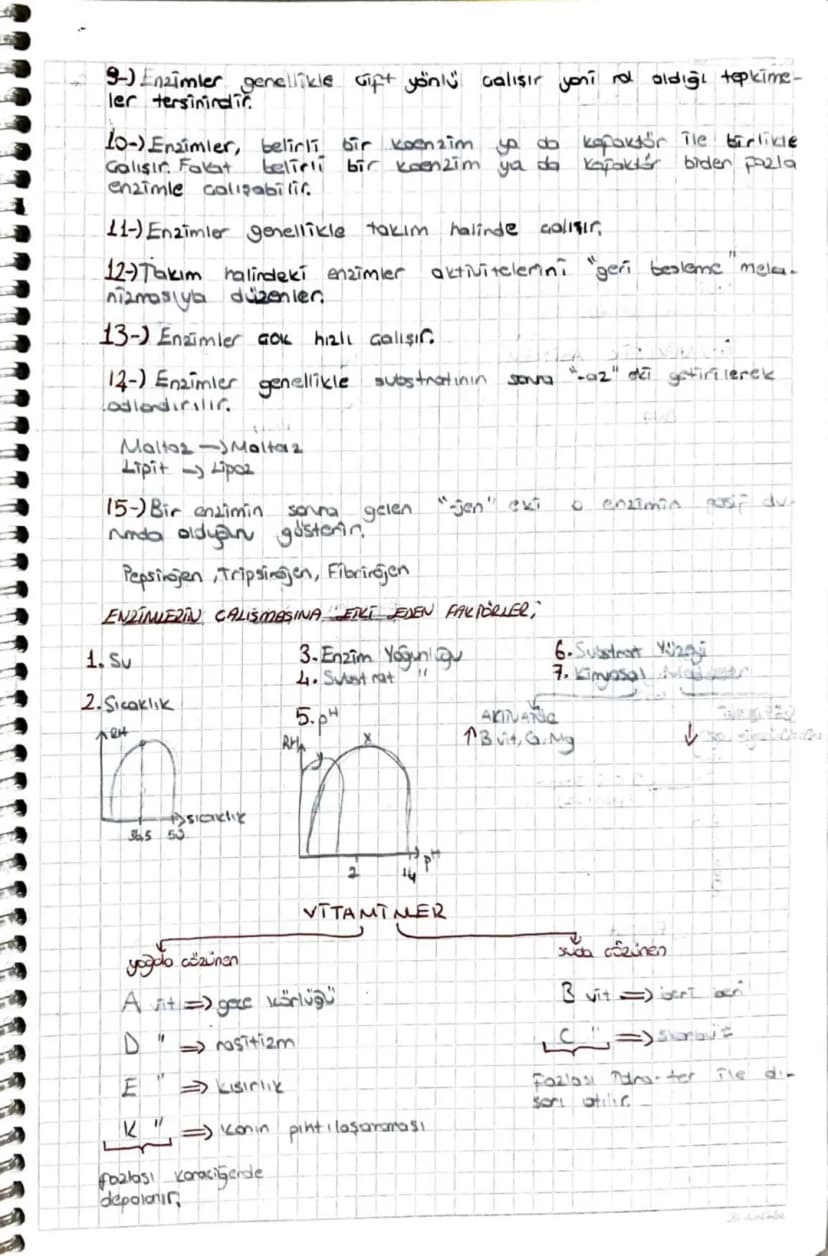 9-) Enzimler genellikle çift yönlü çalışır yani rol aldığı tepkime-
ler tersinirdir.
10-) Enzimler, belirli bir koenzim ya da kofaktör ile birlikte
çalışır. Fakat belirli bir koenzim ya da kofaktör birden fazla
enzimle çalışabilir.
11-) Enzimler genellikle takım halinde çalışır.
12-) Takım halindeki enzimler aktivitelerini "geri besleme" meka-
nizmasıyla düzenler.
13-) Enzimler çok hızlı çalışır.
14-) Enzimler genellikle substratının sonra "-az" eki getirilerek
adlandırılır.
Maltoz → Maltaz
Lipit → Lipaz
15-) Bir enzimin sonra gelen "-jen" eki o enzimin pasif du-
rumda olduğunu gösterir.
Pepsinojen, Tripsinojen, Fibrinojen
ENZİMLERİN ÇALIŞMASINA ETKİ EDEN FAKTÖRLER;
1. Su
3. Enzim Yoğunluğu
6. Substrat Yüzeyi
4. Substrat "
7. Kimyasal
2. Sıcaklık
5. pH
AKTİVATÖR
↑ B vit, Ca, Mg
↓
RH
sıcaklık
36.5 50
RH
y
x
pH
2 14
VİTAMİNLER
yağda çözünen
suda çözünen
A vit ⇒ gece körlüğü
B vit ⇒ beri beri
D " ⇒ raşitizm
C " ⇒ Skorbüt
E " ⇒ kısırlık
Fazlası idrar-ter ile dı-
şarı atılır.
K " ⇒ kanın pıhtılaşmaması
fazlası karaciğerde
depolanır.